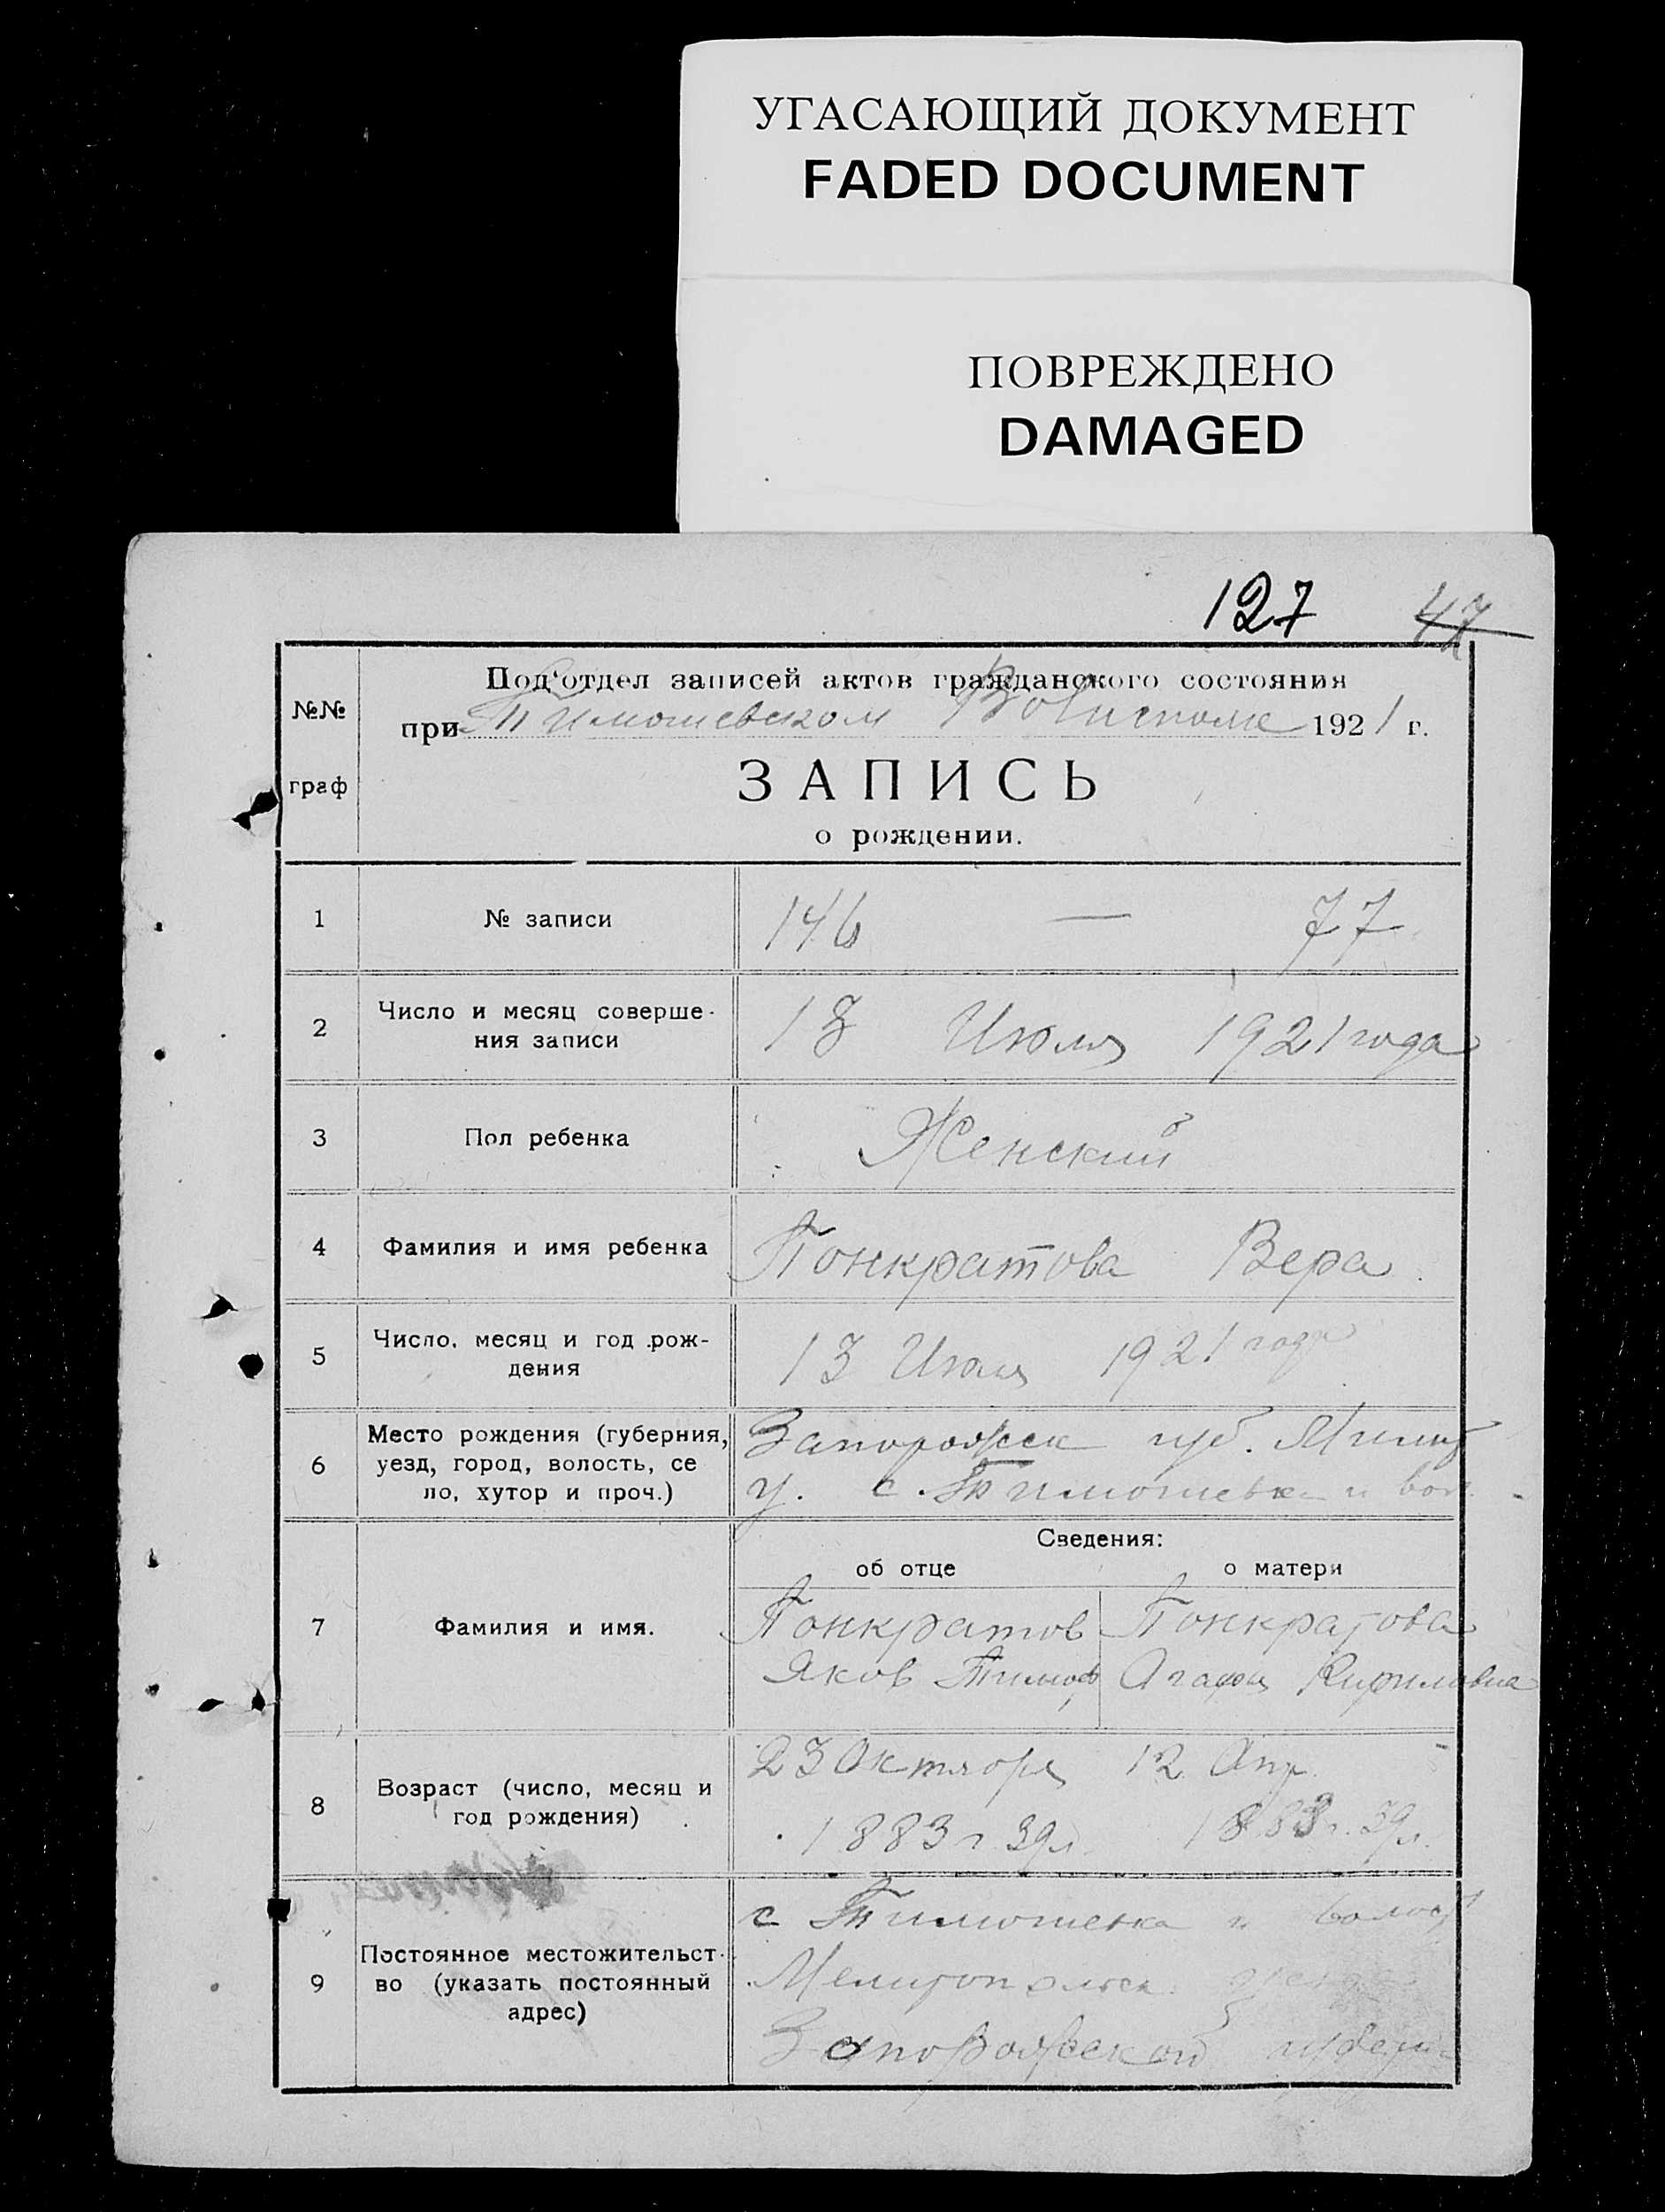 УГАСАЮЩИЙ ДОКУМЕНТ
FADED DOCUMENT
ПОВРЕЖДЕНО
DAMAGED
127 47
№№ граф
Под'отдел записей актов гражданского состояния
при Тимошевском Волисполк 1921 г.
ЗАПИСЬ
о рождении.
1 № записи 146 — 77
2 Число и месяц соверше-
ния записи 13 Июля 1921 года
3 Пол ребенка Женский
4 Фамилия и имя ребенка Понкратова Вера
5 Число, месяц и год рож-
дения 13 Июля 1921 года
6 Место рождения (губерния,
уезд, город, волость, се
ло, хутор и проч.)
Запорожск губ.
у. с. Тимошевка и вол.
Сведения:
об отце о матери
7 Фамилия и имя.
Понкратов Понкратова
Яков Тимоф Агафия Кириловна
8 Возраст (число, месяц и
год рождения)
23 Октября 12 Апр.
1883 г 39 л. 1883 г. 39 л.
9 Постоянное местожительст-
во (указать постоянный
адрес)
с Тимошевка и волост
Мелитопольск
Запорожской губерн